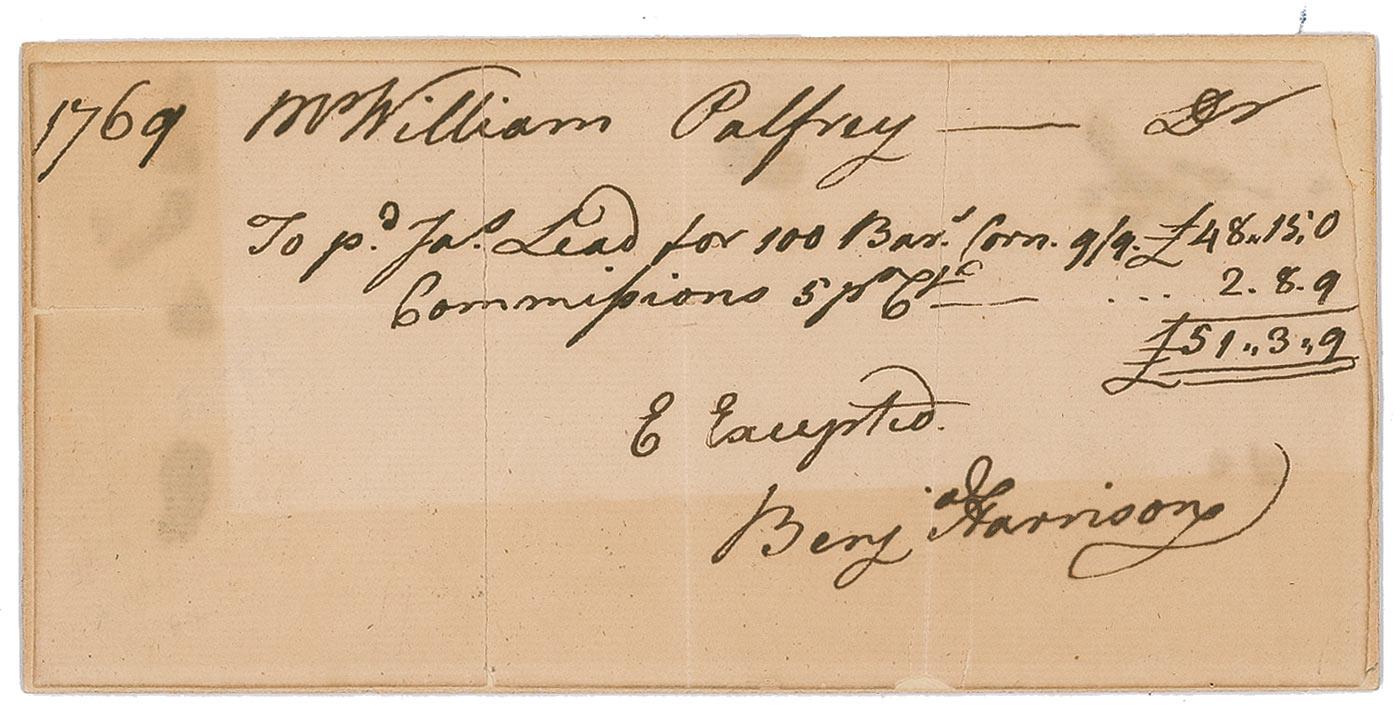 1769 Mr William Palfrey — Dr
To pd. Jas. Lead for 100 Bars. Corn. 9/9. £48..15.0
Commissions 5 pr Ct — ... 2.8.9
£51..3..9
E Excepted.
Benja Harrison